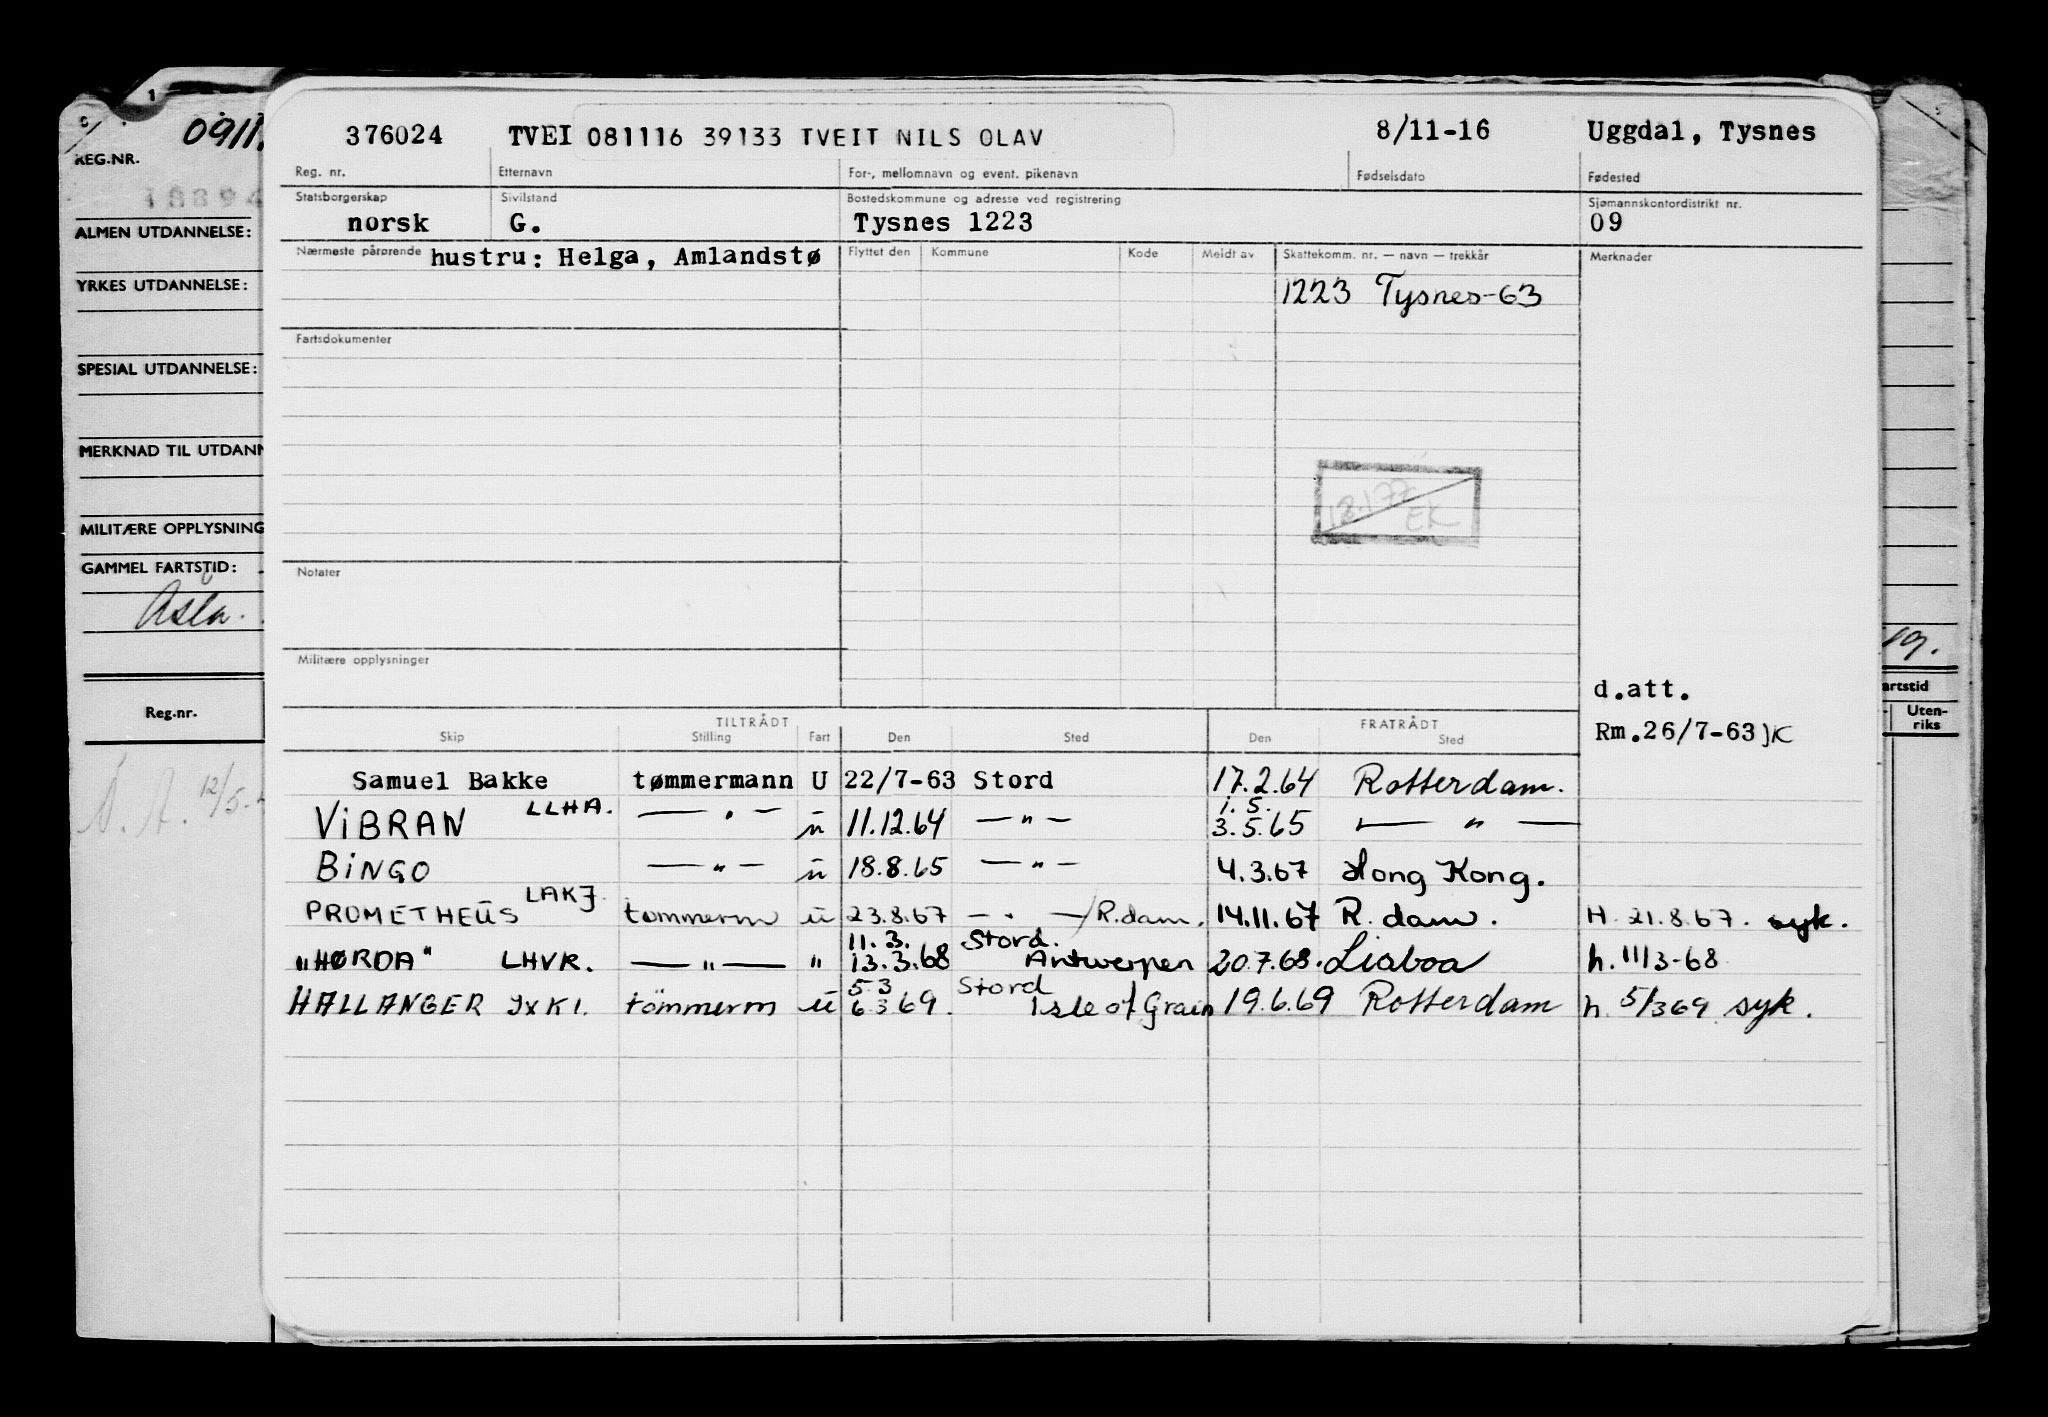 1
0911.
REG.NR.
18894
ALMEN UTDANNELSE:
YRKES UTDANNELSE:
SPESIAL UTDANNELSE:
MERKNAD TIL UTDANN
MILITÆRE OPPLYSNING
GAMMEL FARTSTID:
Reg.nr.
12/5.
376024 TVEI 081116 39133 TVEIT NILS OLAV 8/11-16 Uggdal, Tysnes
Reg. nr. Etternavn For-, mellomnavn og event. pikenavn Fødselsdato Fødested
Statsborgerskap Sivilstand Bostedskommune og adresse ved registrering Sjømannskontordistrikt nr.
norsk G. Tysnes 1223 09
Nærmeste pårørende hustru: Helga, Amlandstø Flyttet den Kommune Kode Meldt av Skattekomm. nr. — navn — trekkår Merknader
1223 Tysnes-63
Fartsdokumenter
12.1.77
EK
Notater
Militære opplysninger
d.att.
Rm.26/7-63 JK
TILTRÅDT FRATRÅDT
Skip Stilling Fart Den Sted Den Sted
Samuel Bakke tømmermann U 22/7-63 Stord 17.2.64 Rotterdam.
1.5.
VIBRAN LLHA. — " — u 11.12.64 — " — 3.5.65 — " —
BINGO — " — u 18.8.65 — " — 4.3.67 Hong Kong.
PROMETHEUS LAKJ. tømmerm u 23.8.67 — " — / R.dam. 14.11.67 R.dam. H. 21.8.67. syk.
11.3. Stord.
"HØRDA" LHVR. — " — " 13.3.68 Antwerpen 20.7.68. Lisboa h. 11/3-68
5.3 Stord
HALLANGER JXKI. tömmerm u 6.3.69. Isle of Grain 19.6.69 Rotterdam h. 5/369 syk.
19.
artstid
Uten-
riks